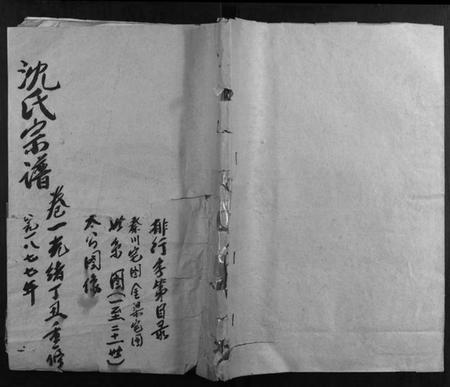 沈氏宗谱
卷一光绪丁丑重修
公元一八七七年
排行李第目录
秦川宅图 金梁宅图
世系图(一至二十一世)
太公图像